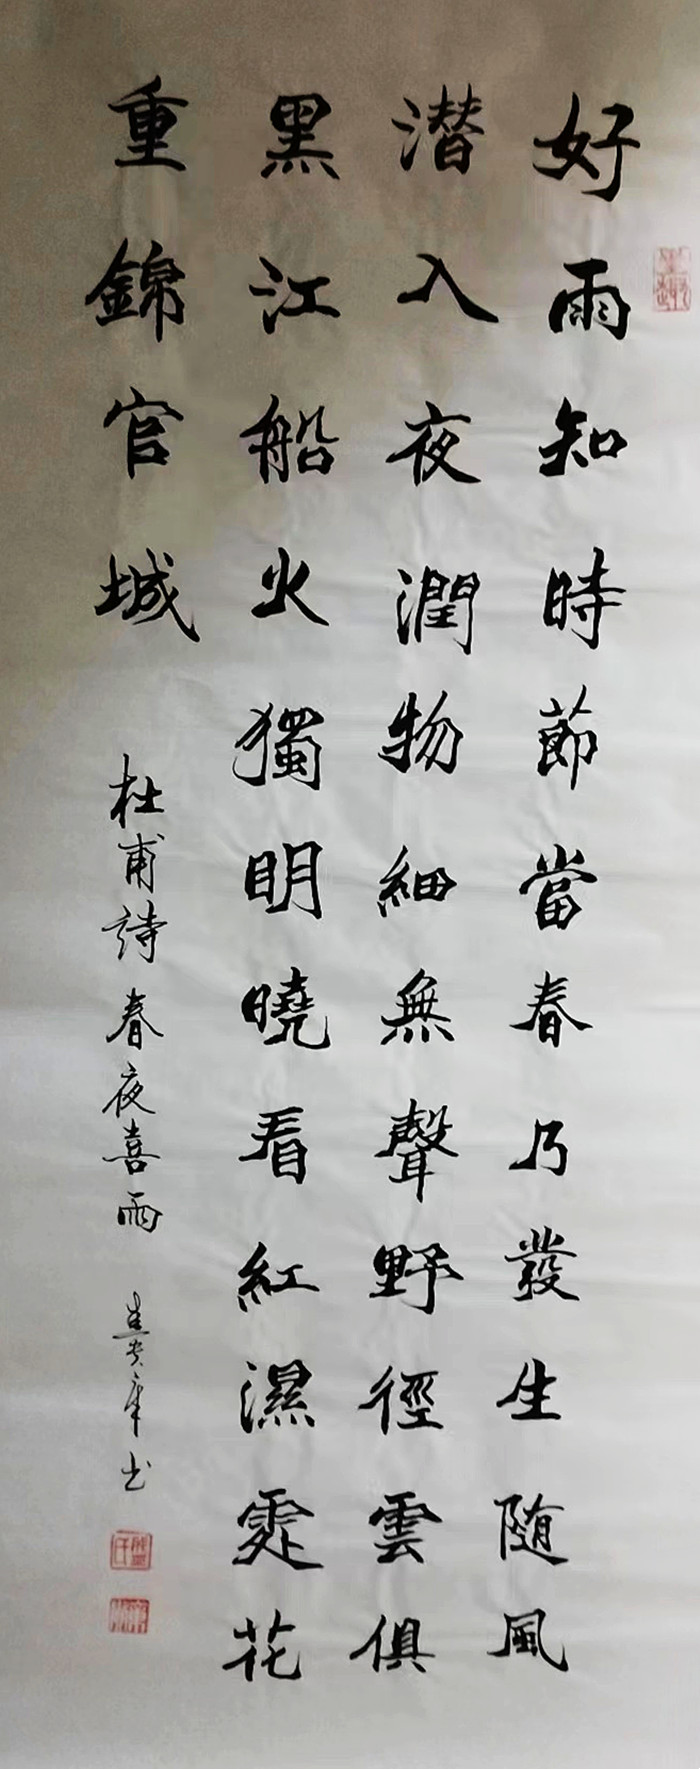 好雨知時節當春乃發生随風
潜入夜潤物細無聲野徑雲俱
黑江船火獨明曉看紅濕霥花
重錦官城
杜甫詩春夜喜雨
書